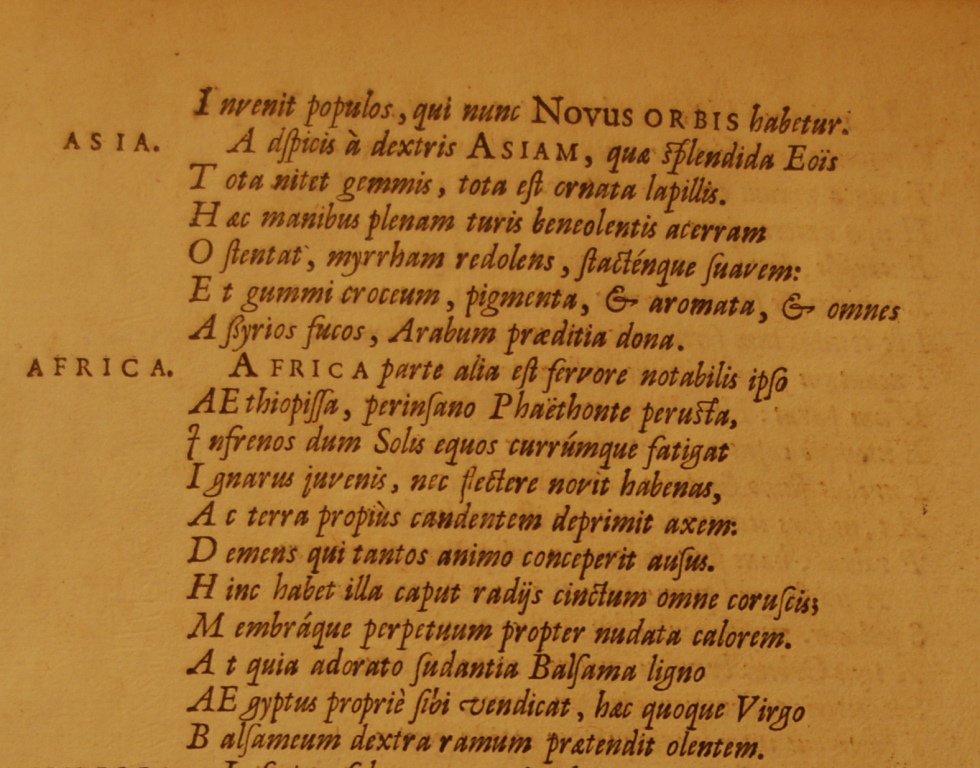 Invenit populos, qui nunc NOVUS ORBIS habetur.
ASIA. Adspicis à dextris ASIAM, quæ splendida Eoïs
Tota nitet gemmis, tota est ornata lapillis.
Hæc manibus plenam turis beneolentis acerram
Ostentat, myrrham redolens, stacténque suavem:
Et gummi croceum, pigmenta, & aromata, & omnes
Assyrios fucos, Arabum præditia dona.
AFRICA. AFRICA parte alia est fervore notabilis ipso
AEthiopissa, perinsano Phaëthonte perusta,
Infrenos dum Solis equos currúmque fatigat
Ignarus juvenis, nec flectere novit habenas,
Ac terra propiùs candentem deprimit axem:
Demens qui tantos animo conceperit ausus.
Hinc habet illa caput radijs cinctum omne coruscis;
Membráque perpetuum propter nudata calorem.
At quia adorato sudantia Balsama ligno
AEgyptus propriè sibi vendicat, hæc quoque Virgo
Balsameum dextra ramum prætendit olentem.